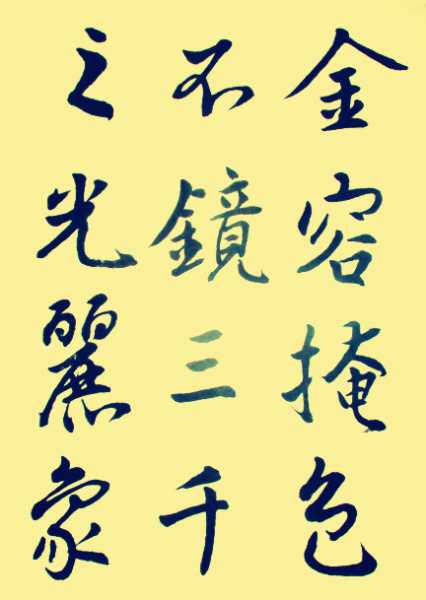 金容掩色
不鏡三千
之光麗象